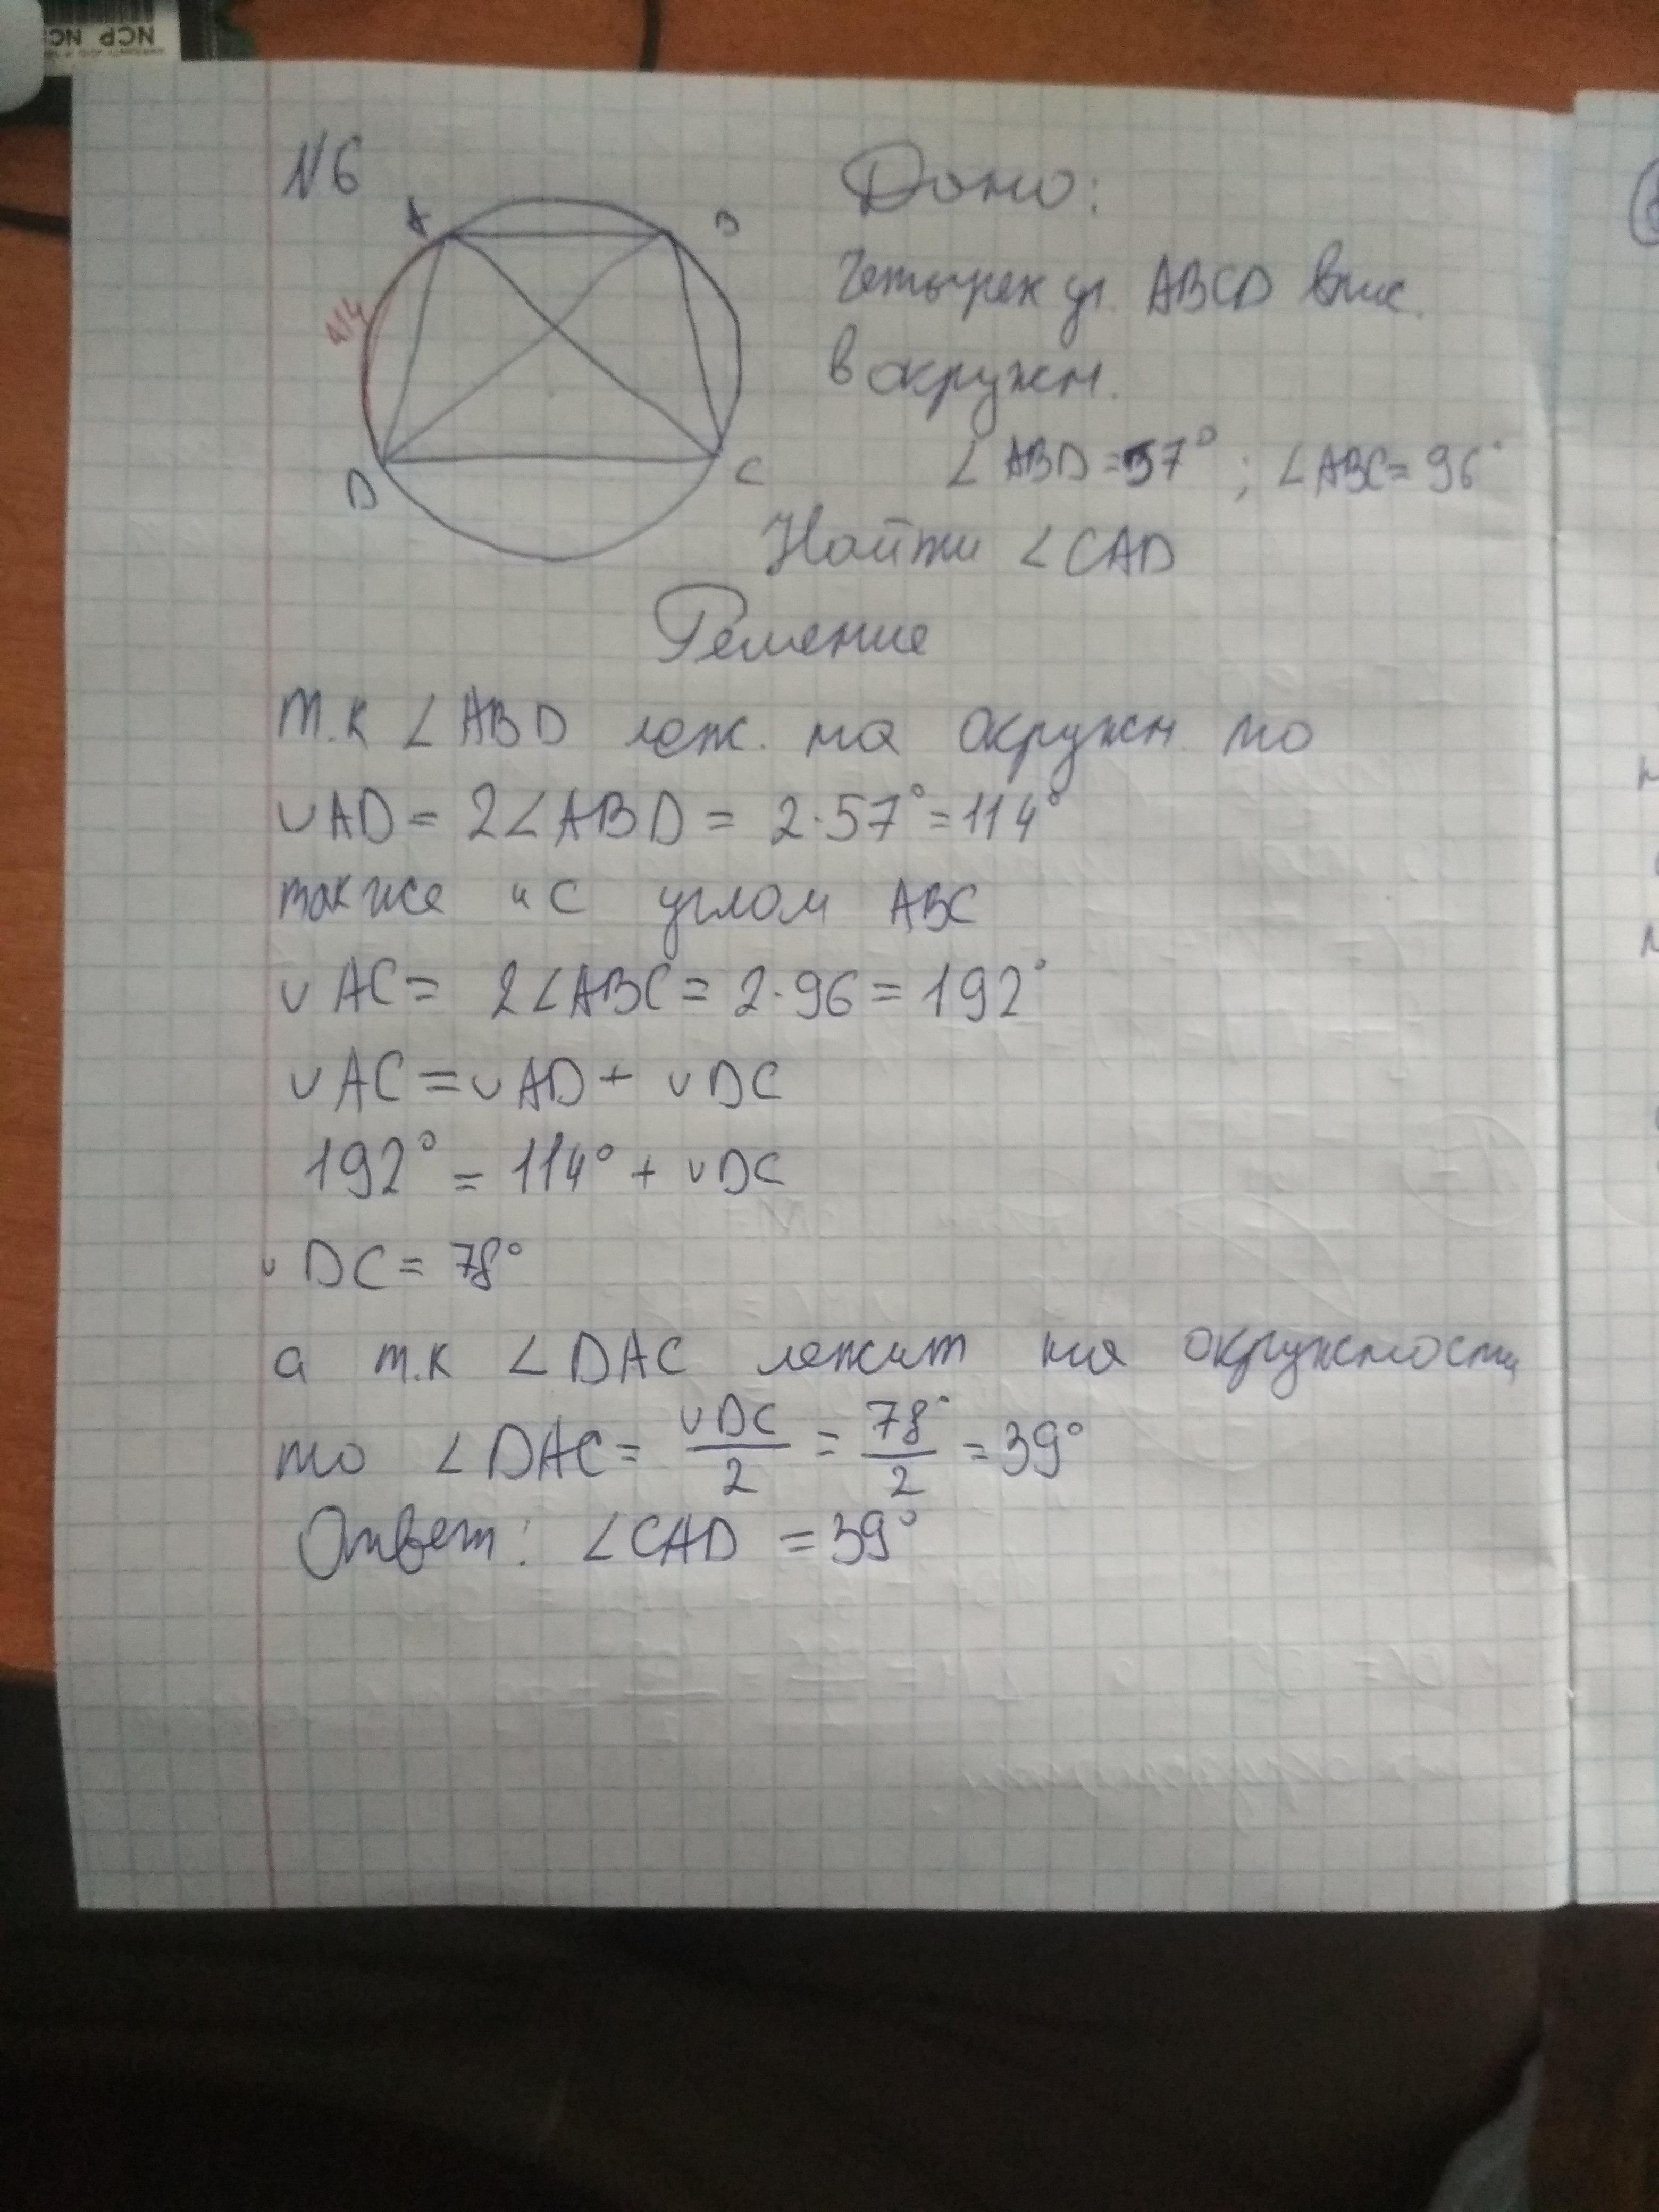 NCP NC
N6
A
B
114
D
C
Дано:
Четырех уг. ABCD впис.
в окружн.
∠ ABD = 57° ; ∠ABC = 96°
Найти ∠ CAD
Решение
т.к ∠ ABD леж. на окружн то
∪AD = 2∠ABD = 2·57° = 114°
также и с углом ABC
∪ AC = 2∠ABC = 2·96 = 192°
∪ AC = ∪ AD + ∪ DC
192° = 114° + ∪DC
∪ DC = 78°
а т.к ∠ DAC лежит на окружности
то ∠ DAC = ∪DC/2 = 78°/2 = 39°
Ответ: ∠CAD = 39°